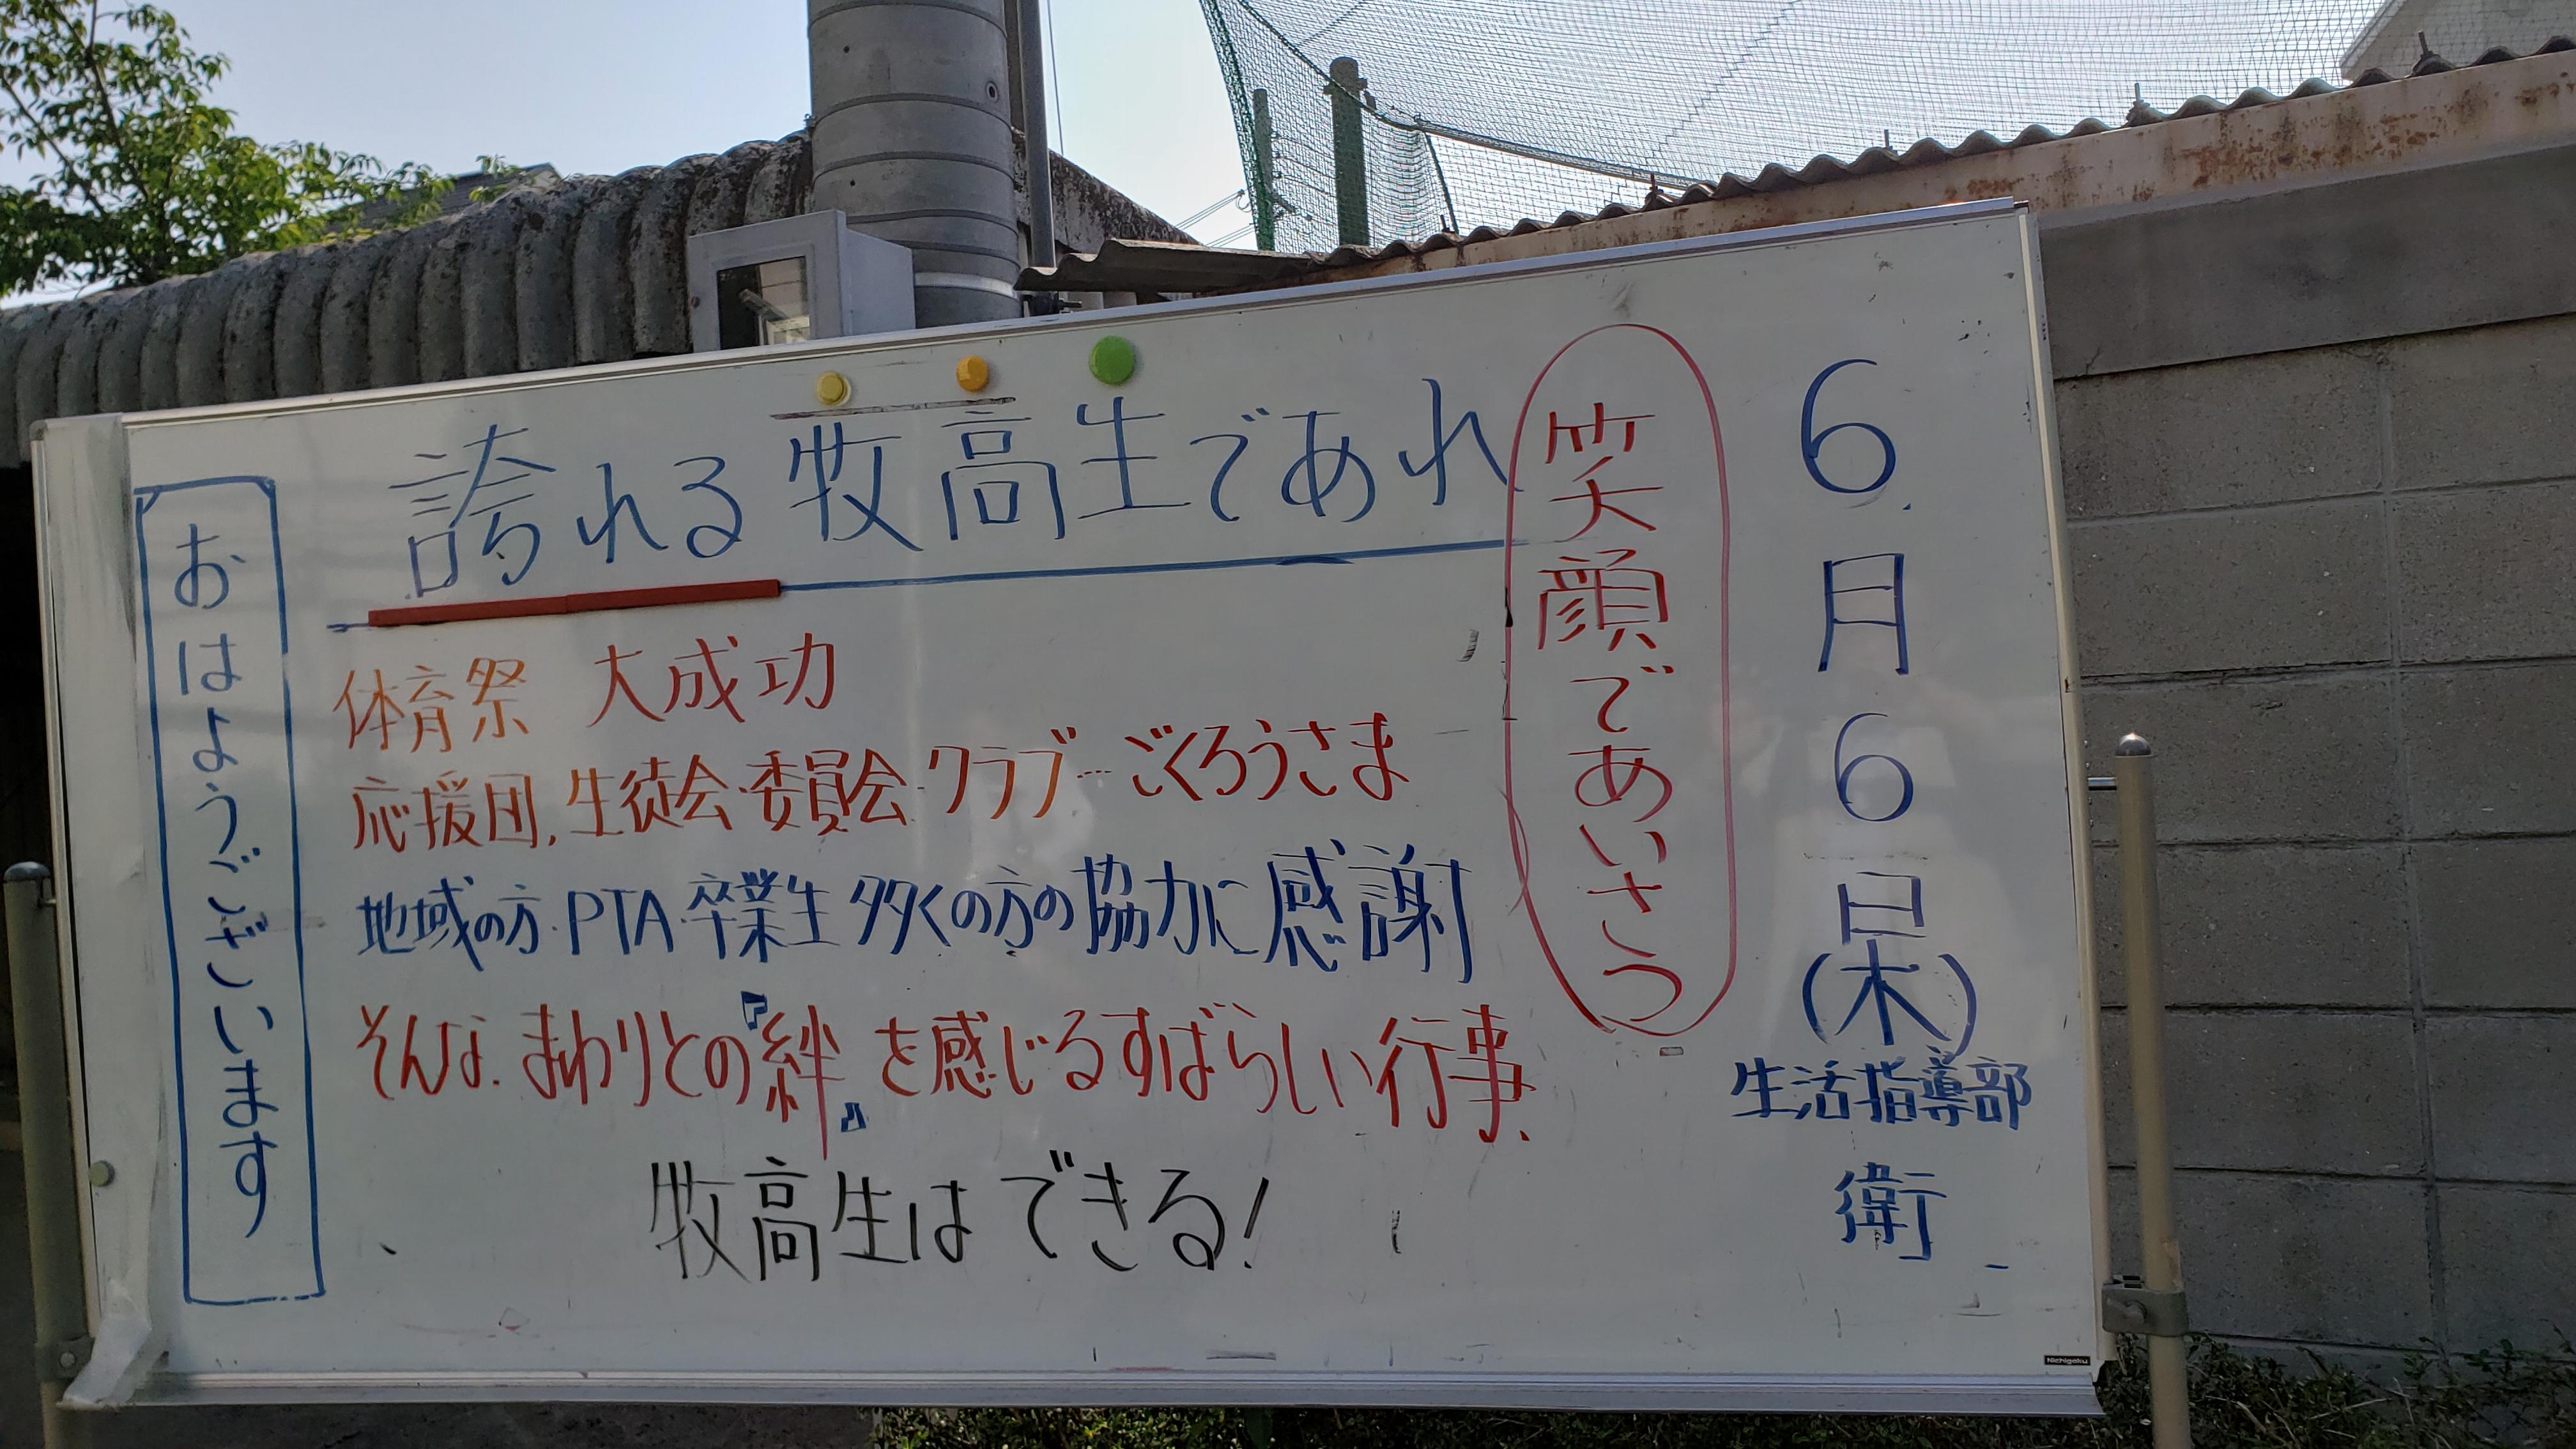 6月6日(木)
生活指導部
衛
笑顔であいさつ
誇れる牧高生であれ
体育祭 大成功
応援団.生徒会・委員会・クラブ…ごくろうさま
地域の方・PTA・卒業生 多くの方の協力に感謝
そんな.まわりとの『絆』を感じるすばらしい行事.
牧高生はできる!
おはようございます
Nichigaku